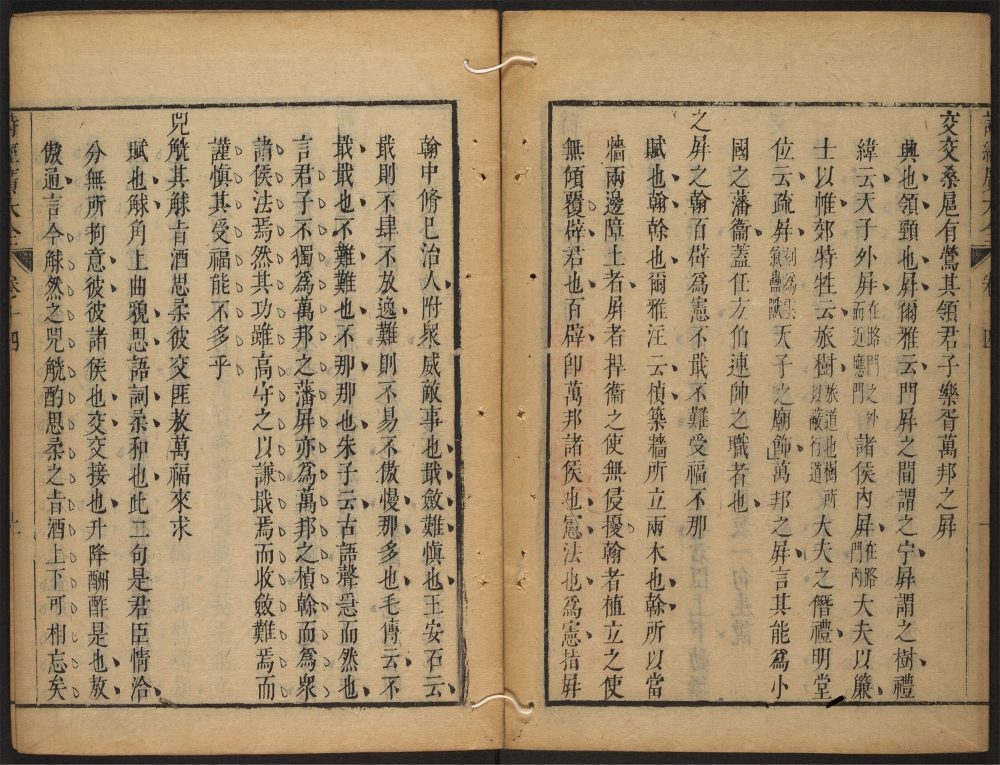 交交桑扈有鶯其領君子樂胥萬邦之屏
興也領頸也屏爾雅云門屏之間謂之宁屏謂之樹禮
緯云天子外屏在路門之外而近應門諸侯內屏在路門內大夫以簾
士以帷郊特牲云旅樹旅道也樹所以蔽行道大夫之僭禮明堂
位云疏屏刻為雲氣蟲獸天子之廟飾萬邦之屏言其能為小
國之藩衞蓋任方伯連帥之職者也
之屏之翰百辟為憲不戢不難受福不那
賦也翰幹也爾雅汪云楨築牆所立兩木也榦所以當
牆兩邊障土者屏者捍衞之使無侵擾翰者植立之使
無傾覆辟君也百辟卽萬邦諸侯也憲法也為憲指屏
翰中脩巳治人附衆威敵事也戢斂難慎也王安石云
戢則不肆不放逸難則不易不傲慢那多也毛傳云不
戢戢也不難難也不那那也朱子云古語聲急而然也
言君子不獨為萬邦之藩屏亦為萬邦之楨榦而為衆
諸侯法焉然其功雖高守之以謙戢焉而收斂難焉而
謹慎其受福能不多乎
兕觥其觩旨酒思柔彼交匪敖萬福來求
賦也觩角上曲貌思語詞柔和也此二句是君臣情洽
分無所拘意彼彼諸侯也交交接也升降酬酢是也敖
傲通言今觩然之兕觥酌思柔之旨酒上下可相忘矣
詩經廣大全
卷十四